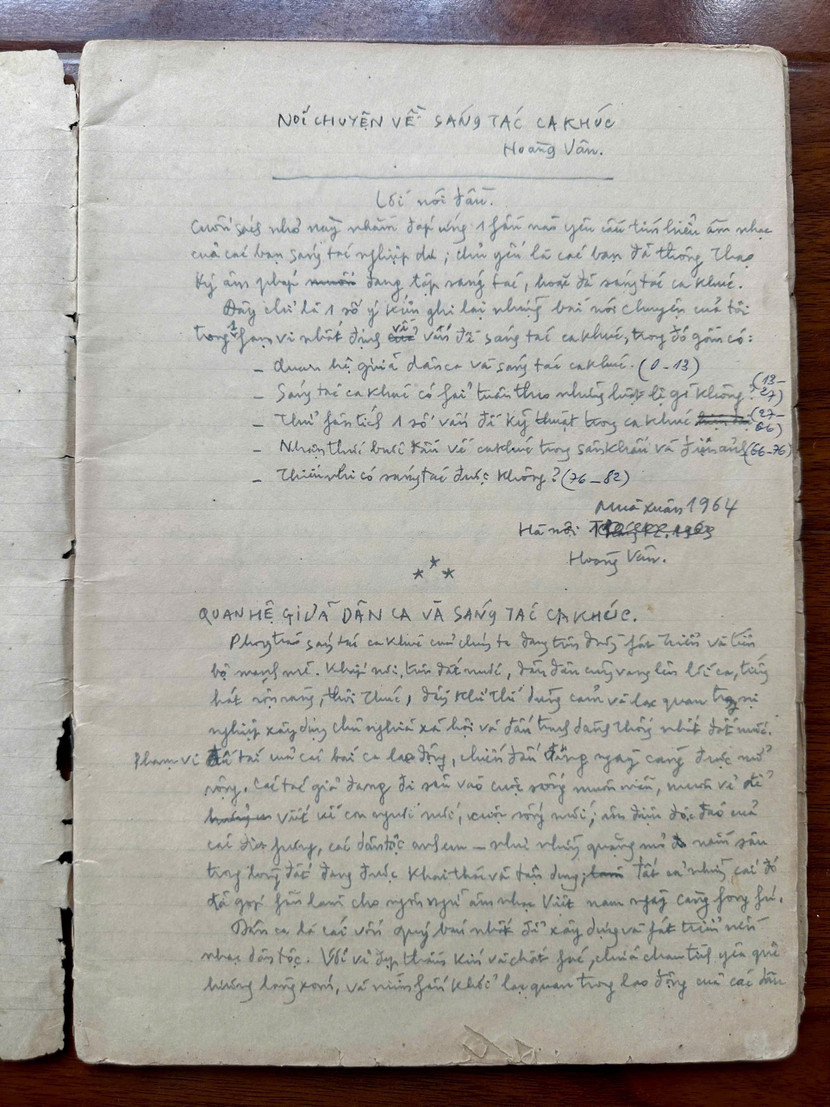 NÓI CHUYỆN VỀ SÁNG TÁC CA KHÚC
Hoàng Vân.
Lời nói đầu.
Cuốn sách nhỏ này nhằm đáp ứng 1 fần nào yêu cầu tìm hiểu âm nhạc
của các bạn sáng tác nghiệp dư; chủ yếu là các bạn đã thông thạo
ký âm pháp đang tập sáng tác, hoặc đã sáng tác ca khúc.
Đây chỉ là 1 số ý kiến ghi lại những bài nói chuyện của tôi
trong 1 fạm vi nhất định về vấn đề sáng tác ca khúc, trong đó gồm có:
- Quan hệ giữa dân ca và sáng tác ca khúc. (0-13)
- Sáng tác ca khúc có fải tuân theo những luật lệ gì không? (13-27)
- Thử fân tích 1 số vấn đề kỹ thuật trong ca khúc (27-66)
- Nhận thức bước đầu về ca khúc trong sân khấu và điện ảnh (66-76)
- Thiếu nhi có sáng tác được không? (76-82)
Mùa xuân 1964
Hà nội
Hoàng Vân.
***
QUAN HỆ GIỮA DÂN CA VÀ SÁNG TÁC CA KHÚC.
Phong trào sáng tác ca khúc của chúng ta đang trên đường fát triển và tiến
bộ mạnh mẽ. Khắp nơi, trên đất nước, dần dần cũng vang lên lời ca, tiếng
hát rộn ràng, thôi thúc, đầy khí thế dũng cảm và lạc quan trong sự
nghiệp xây dựng chủ nghĩa xã hội và đấu tranh dành thống nhất đất nước.
Phạm vi đề tài của các bài ca lao động, chiến đấu ngày càng được mở
rộng. Các tác giả đang đi sâu vào cuộc sống muôn màu, muôn vẻ để
viết về con người mới, cuộc sống mới; âm điệu độc đáo của
các địa fương, các dân tộc anh em - như những quặng mỏ nằm sâu
trong lòng đất đang được khai thác và tận dụng; Tất cả những cái đó
đã góp fần làm cho ngôn ngữ âm nhạc Việt nam ngày càng fong fú.
Dân ca là cái vốn quý báu nhất để xây dựng và fát triển nền
nhạc dân tộc. Với vẻ đẹp thầm kín và chất fác, chứa chan tình yêu quê
hương làng xóm, và niềm fấn khởi lạc quan trong lao động của các dân